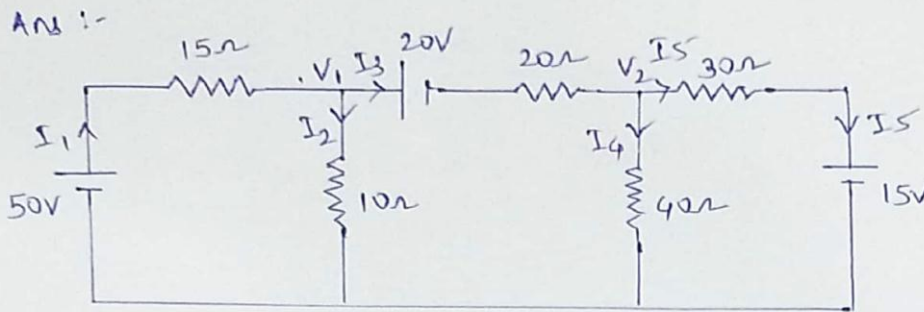 Ans :-
15Ω .V₁ I₃ 20V 20Ω V₂ I5 30Ω
I₁ I₂ I₄ I5
50V 10Ω 40Ω 15V